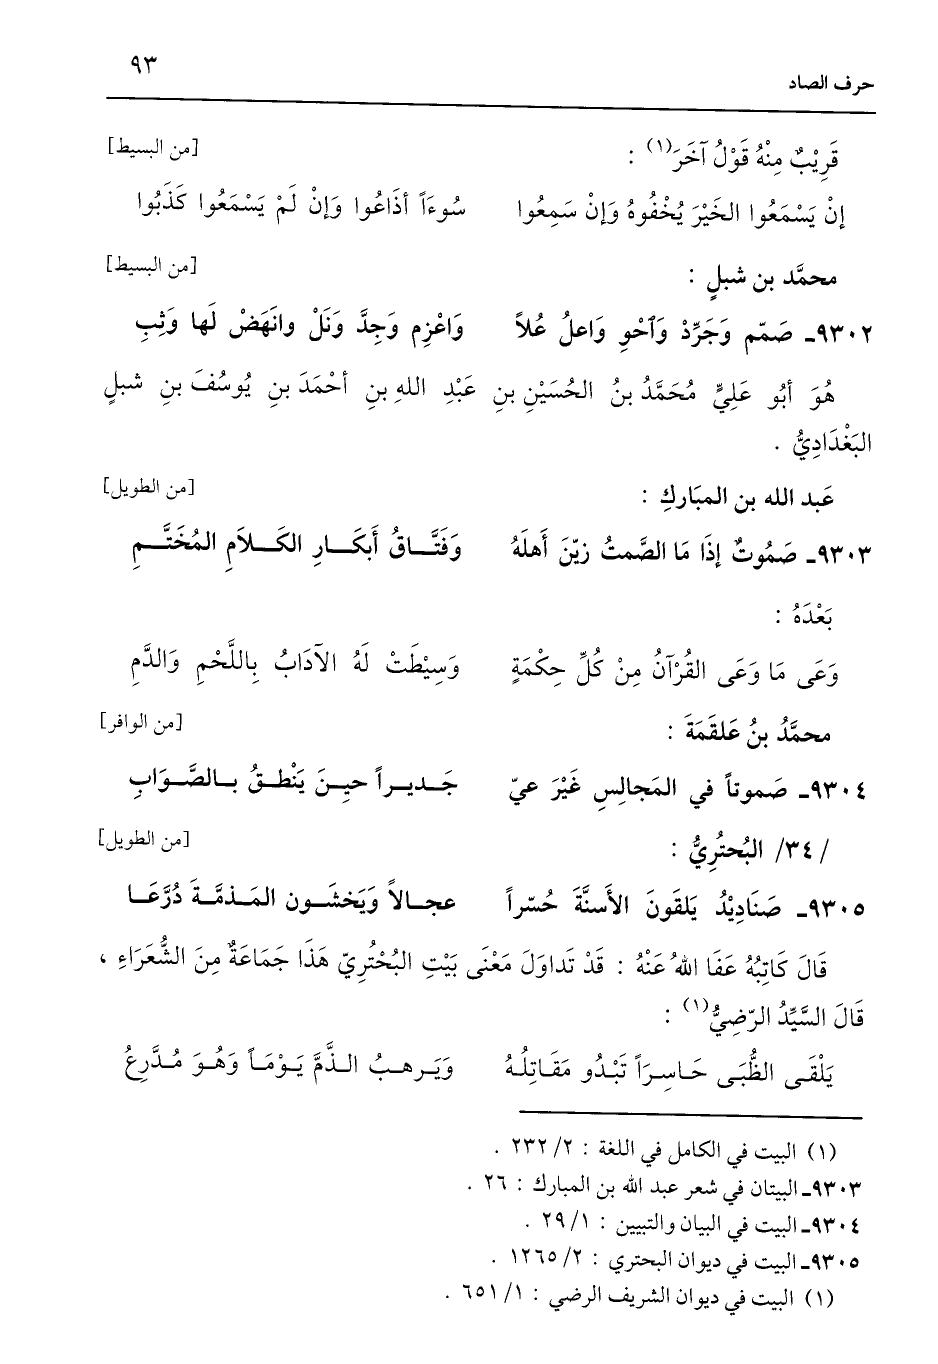 ٩٣
حرف الصاد
قَرِيْبٌ مِنْهُ قَوْلُ آخَرَ(١) : [من البسيط]
إنْ يَسْمَعُوا الخَيْرَ يُخْفُوهُ وَإنْ سَمِعُوا سُوءَاً أذَاعُوا وَإنْ لَمْ يَسْمَعُوا كَذَبُوا
محمَّد بن شبلٍ : [من البسيط]
٩٣٠٢ـ صَمّم وَجَرِّدْ وَآحْوِ وَاعلُ عُلاً وَاعْزِم وَجِدَّ وَنَلْ وانَهَضْ لَها وَثِبِ
هُوَ أبُو عَلِيٍّ مُحَمَّدُ بنُ الحُسَيْنِ بنِ عَبْدِ اللهِ بنِ أحْمَدَ بنِ يُوسُفَ بنِ شبلٍ
البَغْدَادِيُّ .
عَبد الله بن المبَاركِ : [من الطويل]
٩٣٠٣ـ صَمُوتٌ إذَا مَا الصَّمتُ زيّنَ أَهلَهُ وَفَتَّــاقُ أَبكَــارِ الكَــلاَمِ المُخَتَّــمِ
بَعْدَهُ :
وَعَى مَا وَعَى القُرْآنُ مِنْ كُلِّ حِكْمَةٍ وَسِيْطَتْ لَهُ الآدَابُ بِاللَّحْمِ وَالدَّمِ
محمَّدُ بنُ عَلقَمَةَ : [من الوافر]
٩٣٠٤ـ صَموتاً في المَجالِسِ غَيْرَ عيّ جَــديــراً حيِــنَ يَنْطــقُ بــالصَّــوَابِ
/٣٤/ البُحتُرِيُّ : [من الطويل]
٩٣٠٥ـ صَنَادِيْدُ يَلقَونَ الأَسنَّةَ حُسّراً عجــالاً وَيَخشَــون المَــذمَّــةَ دُرَّعَــا
قَالَ كَاتِبُهُ عَفَا اللهُ عَنْهُ : قَدْ تَداوَلَ مَعْنَى بَيْتِ البُحْتُرِيّ هَذَا جَمَاعَةٌ مِنَ الشُّعَرَاءِ ،
قَالَ السَّيِّدُ الرّضِيُّ(١) :
يَلْقَـى الظُّبَـى حَـاسِـرَاً تَبْـدُو مَقَـاتِلُـهُ وَيَـرهـبُ الـذَّمَّ يَـوْمَـاً وَهُـوَ مُـدَّرِعُ
(١) البيت في الكامل في اللغة : ٢/ ٢٣٢ .
٩٣٠٣ـ البيتان في شعر عبد الله بن المبارك : ٢٦ .
٩٣٠٤ـ البيت في البيان والتبيين : ١/ ٢٩ .
٩٣٠٥ـ البيت في ديوان البحتري : ٢/ ١٢٦٥ .
(١) البيت في ديوان الشريف الرضي : ١/ ٦٥١ .